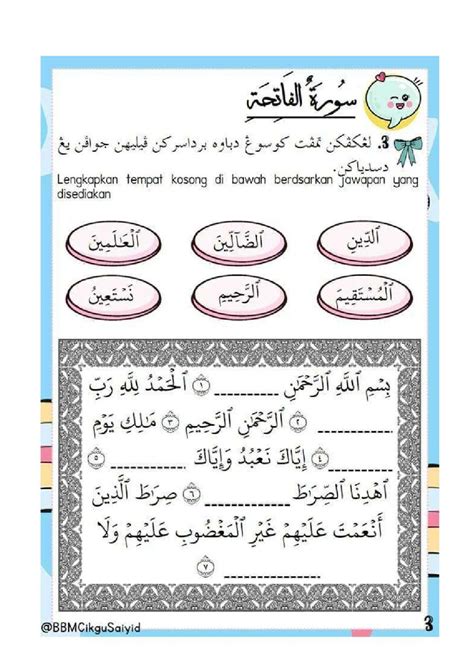 سُورَةُ الفَاتِحَة
3. لڠکڤکن تمڤت کوسوڠ دباوه برداسرکن ڤيليهن جواڤن يڠ
دسدياکن.
Lengkapkan tempat kosong di bawah berdsarkan jawapan yang
disediakan
ٱلدِّينِ ٱلضَّآلِّينَ ٱلْعَٰلَمِينَ
ٱلْمُسْتَقِيمَ ٱلرَّحِيمِ نَسْتَعِينُ
بِسْمِ ٱللَّهِ ٱلرَّحْمَٰنِ __________ ١ ٱلْحَمْدُ لِلَّهِ رَبِّ
__________ ٢ ٱلرَّحْمَٰنِ ٱلرَّحِيمِ ٣ مَٰلِكِ يَوْمِ
__________ ٤ إِيَّاكَ نَعْبُدُ وَإِيَّاكَ __________ ٥
ٱهْدِنَا ٱلصِّرَٰطَ __________ ٦ صِرَٰطَ ٱلَّذِينَ
أَنْعَمْتَ عَلَيْهِمْ غَيْرِ ٱلْمَغْضُوبِ عَلَيْهِمْ وَلَا
__________ ٧
@BBMCikguSaiyid 3